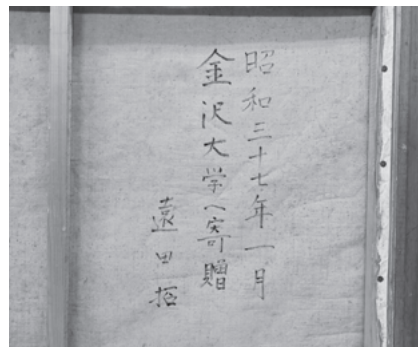 昭和三十七年一月
金沢大学へ寄贈
遠田